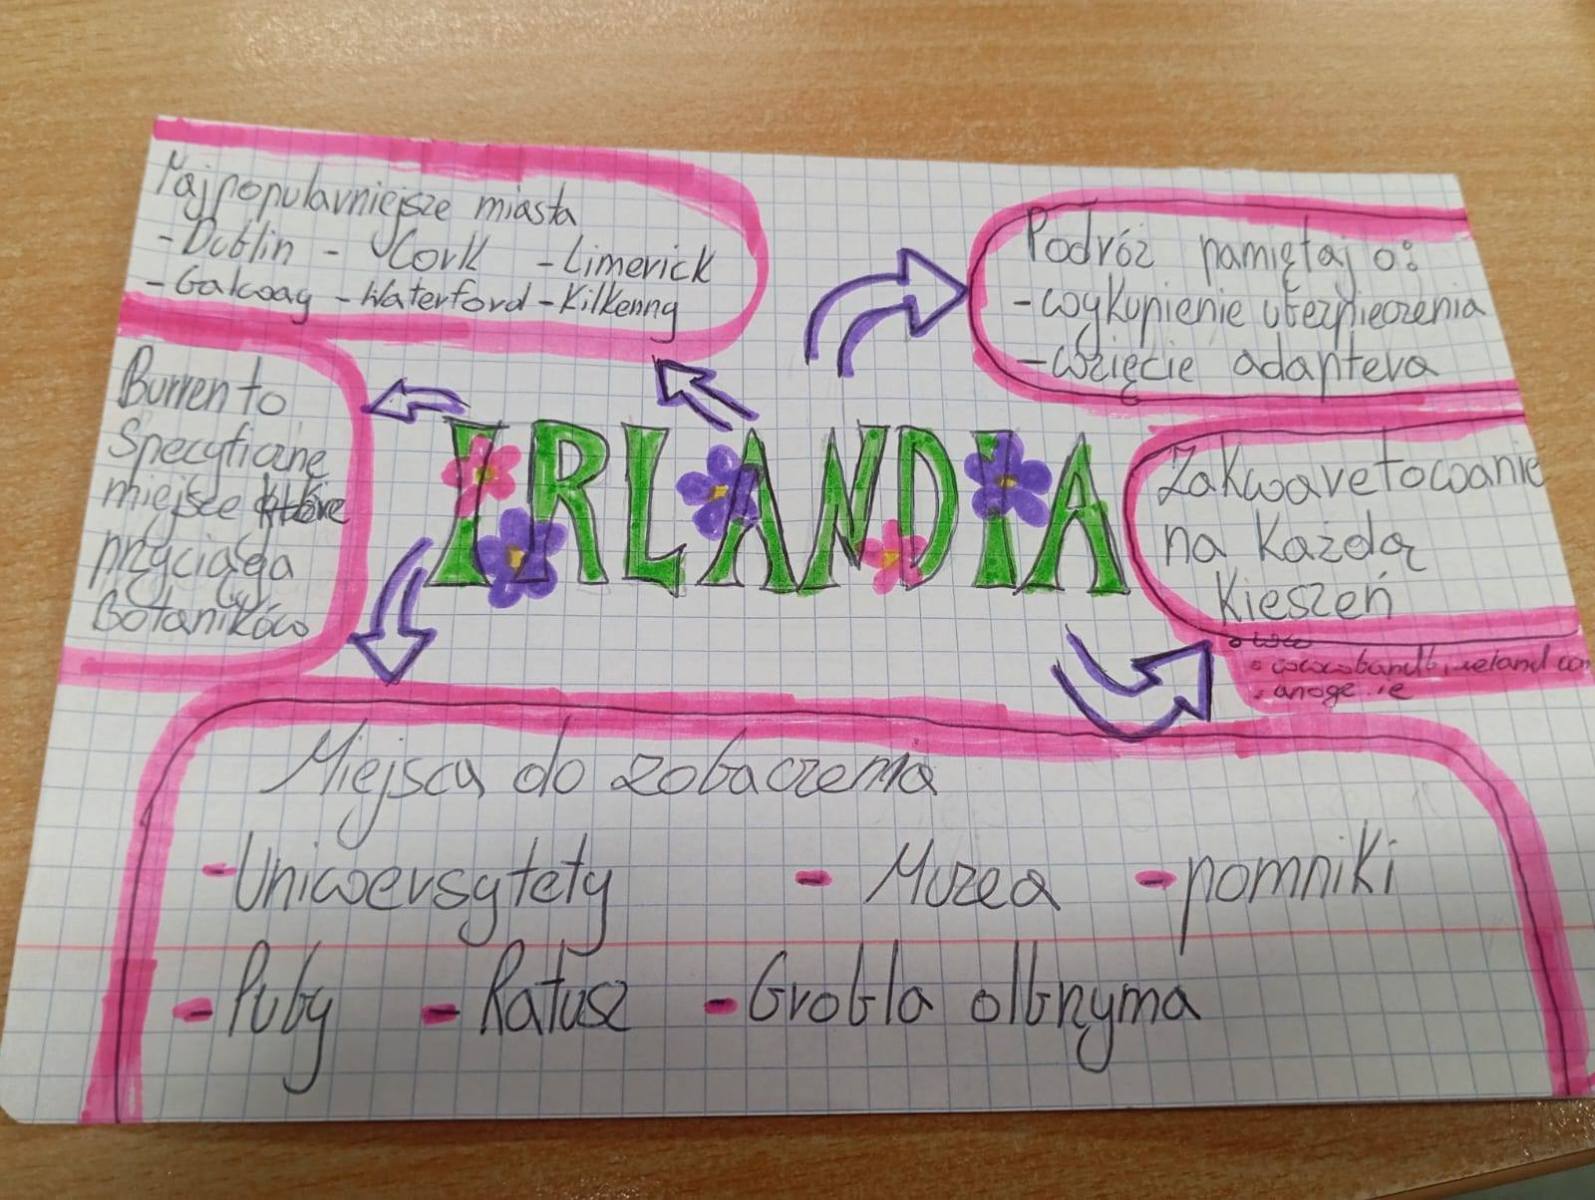 Najpopularniejsze miasta
- Dublin - Cork - Limerick
- Galway - Waterford - Kilkenny
Podróż pamiętaj o:
- wykupienie ubezpieczenia
- wzięcie adaptera
Burren to
specyficzne
miejsce które
przyciąga
botaników
IRLANDIA
Zakwaretowanie
na każdą
kieszeń
anoge.ie
Miejsca do zobaczenia
- Uniwersytety - Muzea - pomniki
- Puby - Ratusz - Grobla olbrzyma